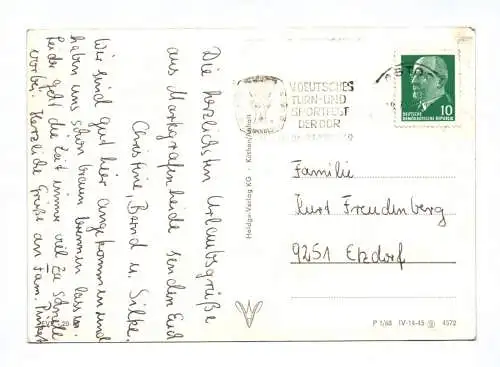 Die herzlichsten Urlaubsgrüße
aus Markgrafenheide senden Euch
Christine, Bernd u. Silke.
Wir sind gut hier angekommen und
haben uns schon braun brennen lassen.
Leider geht die Zeit immer viel zu schnell
vorbei. Herzliche Grüße an Fam.
V. DEUTSCHES
TURN- UND
SPORTFEST
DER DDR
10
DEUTSCHE
DEMOKRATISCHE REPUBLIK
Familie
Kurt Freudenberg
9251 Etzdorf
Verlag KG · Köthen/Anhalt
P 1/68 IV-14-45 4572